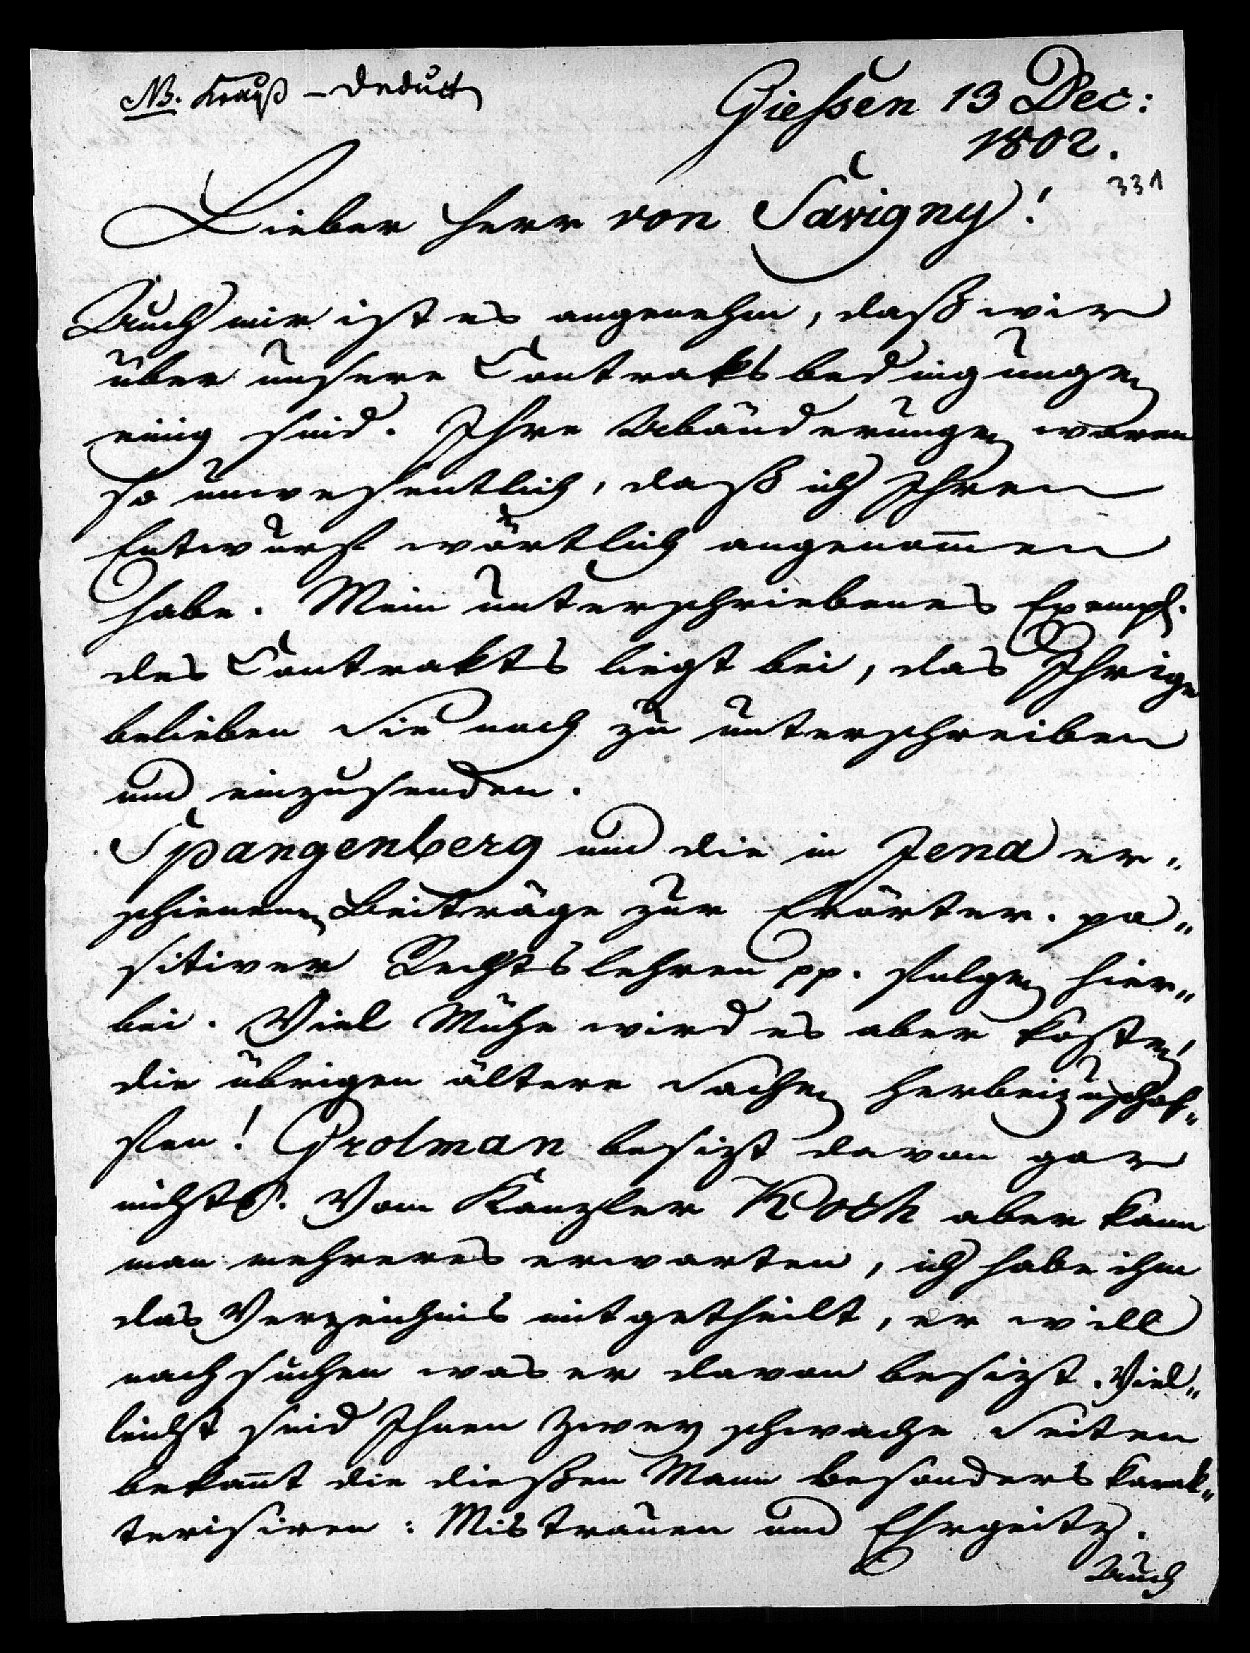 NB. Krauß – Deduct
Giessen 13 Dec:
1802.
331
Lieber Herr von Savigny!
Auch mir ist es angenehm, daß wir
über unsere Contraktsbedingungen
einig sind. Ihre Abänderungen waren
so unwesentlich, daß ich Ihren
Entwurf wörtlich angenom̄en
habe. Mein unterschriebenes Exempl.
des Contrakts liegt bei, das Ihrige
belieben Sie noch zu unterschreiben
und einzusenden.
Spangenberg und die in Jena er„
schienenen Beiträge zur Erörter. po„
sitiver Rechtslehren pp. folgen hier„
bei. Viel Mühe wird es aber kosten,
die übrigen ältere Sachen herbeizuschaf„
fen! Grolman besizt davon gar
nichts. Vom Kanzler Koch aber kann
man mehreres erwarten, ich habe ihm
das Verzeichnis mitgetheilt, er will
nachsuchen was er davon besizt. Viel„
leicht sind Ihnen zwey schwache Seiten
bekan̄t die diesen Mann besonders karak„
terisiren: Mistrauen und Ehrgeitz.
Auch